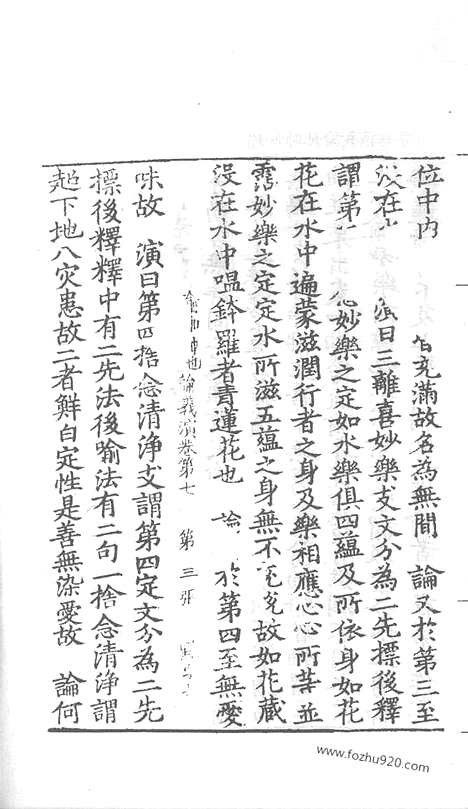 位中内 皆充滿故名為無間 論又於第三至
沒在 演曰三離喜妙樂支文分為二先摽後釋
謂第 妙樂之定如水樂俱四蘊及所依身如花
花在水中遍蒙滋潤行者之身及樂相應心心所等並
霑妙樂之定定水所滋五蘊之身無不 故如花藏
沒在水中嗢鉢羅者青蓮花也 論 於第四至無愛
論義演卷第七 第三張
味故 演曰第四捨念清淨支謂第四定文分為二先
摽後釋釋中有二先法後喻法有二句一捨念清淨謂
超下地八灾患故二者鮮白定性是善無染愛故 論何
www.fozhu920.com